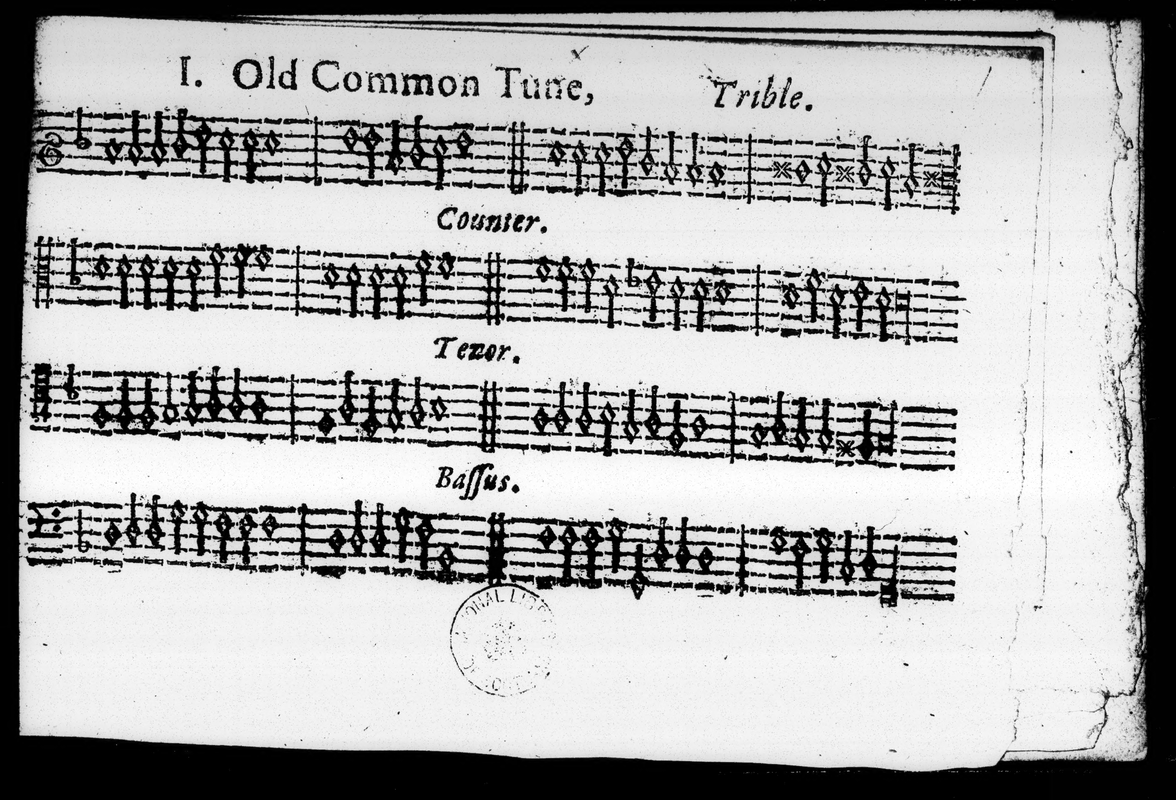 I. Old Common Tune, Trible.
Counter.
Tenor.
Baſſus.